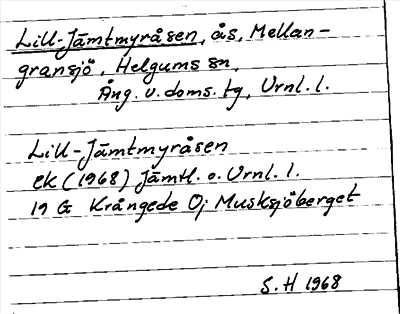 Lill-Jämtmyråsen, ås, Mellan-
gransjö, Helgums sn,
Ång. v. doms. tg, Vrnl. l.
Lill-Jämtmyråsen
ek (1968) Jämtl. o. Vrnl. l.
19 G Krångede Ö; Musksjöberget
S. H 1968